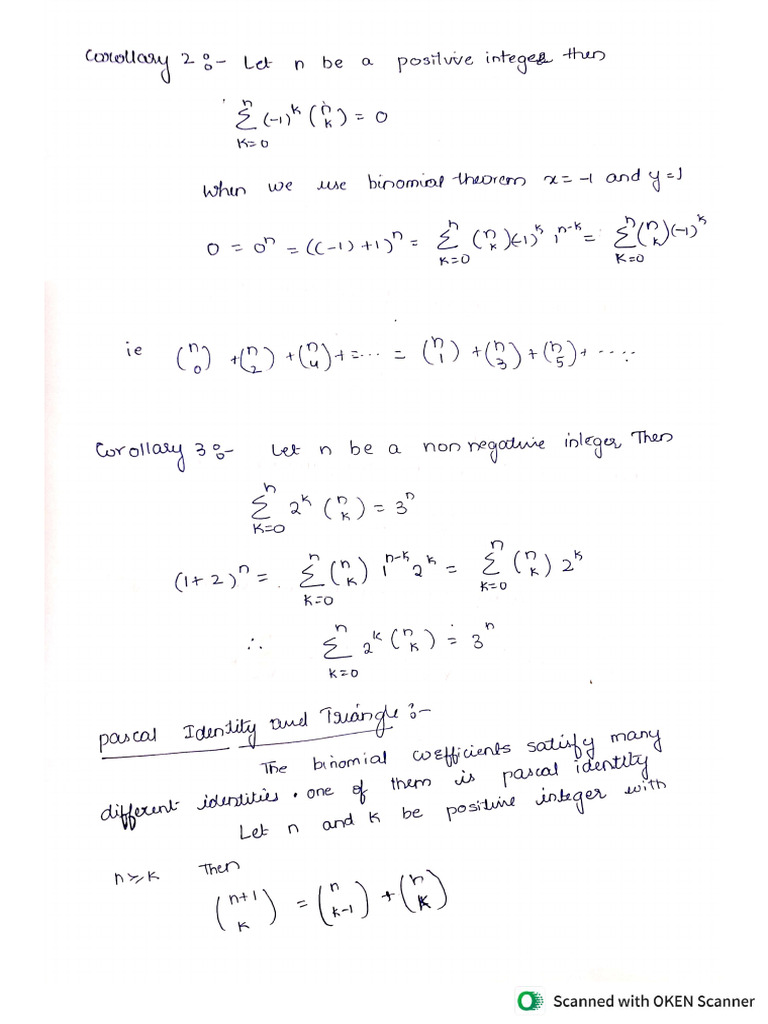 Corollary 2 :- Let n be a positive integer then
n∑k=0 (-1)^k (n k) = 0
When we use binomial theorem x = -1 and y = 1
0 = 0^n = ((-1) + 1)^n = n∑k=0 (n k) (-1)^k 1^n-k = n∑k=0 (n k) (-1)^k
ie (n 0) + (n 2) + (n 4) + = ... = (n 1) + (n 3) + (n 5) + ....
Corollary 3 :- Let n be a non negative integer Then
n∑k=0 2^k (n k) = 3^n
(1 + 2)^n = n∑k=0 (n k) 1^n-k 2^k = n∑k=0 (n k) 2^k
∴ n∑k=0 2^k (n k) = 3^n
Pascal Identity and Triangle :-
The binomial coefficients satisfy many
different identities . one of them is pascal identity
Let n and k be positive integer with
n ≥ k Then
(n+1 k) = (n k-1) + (n k)
Scanned with OKEN Scanner